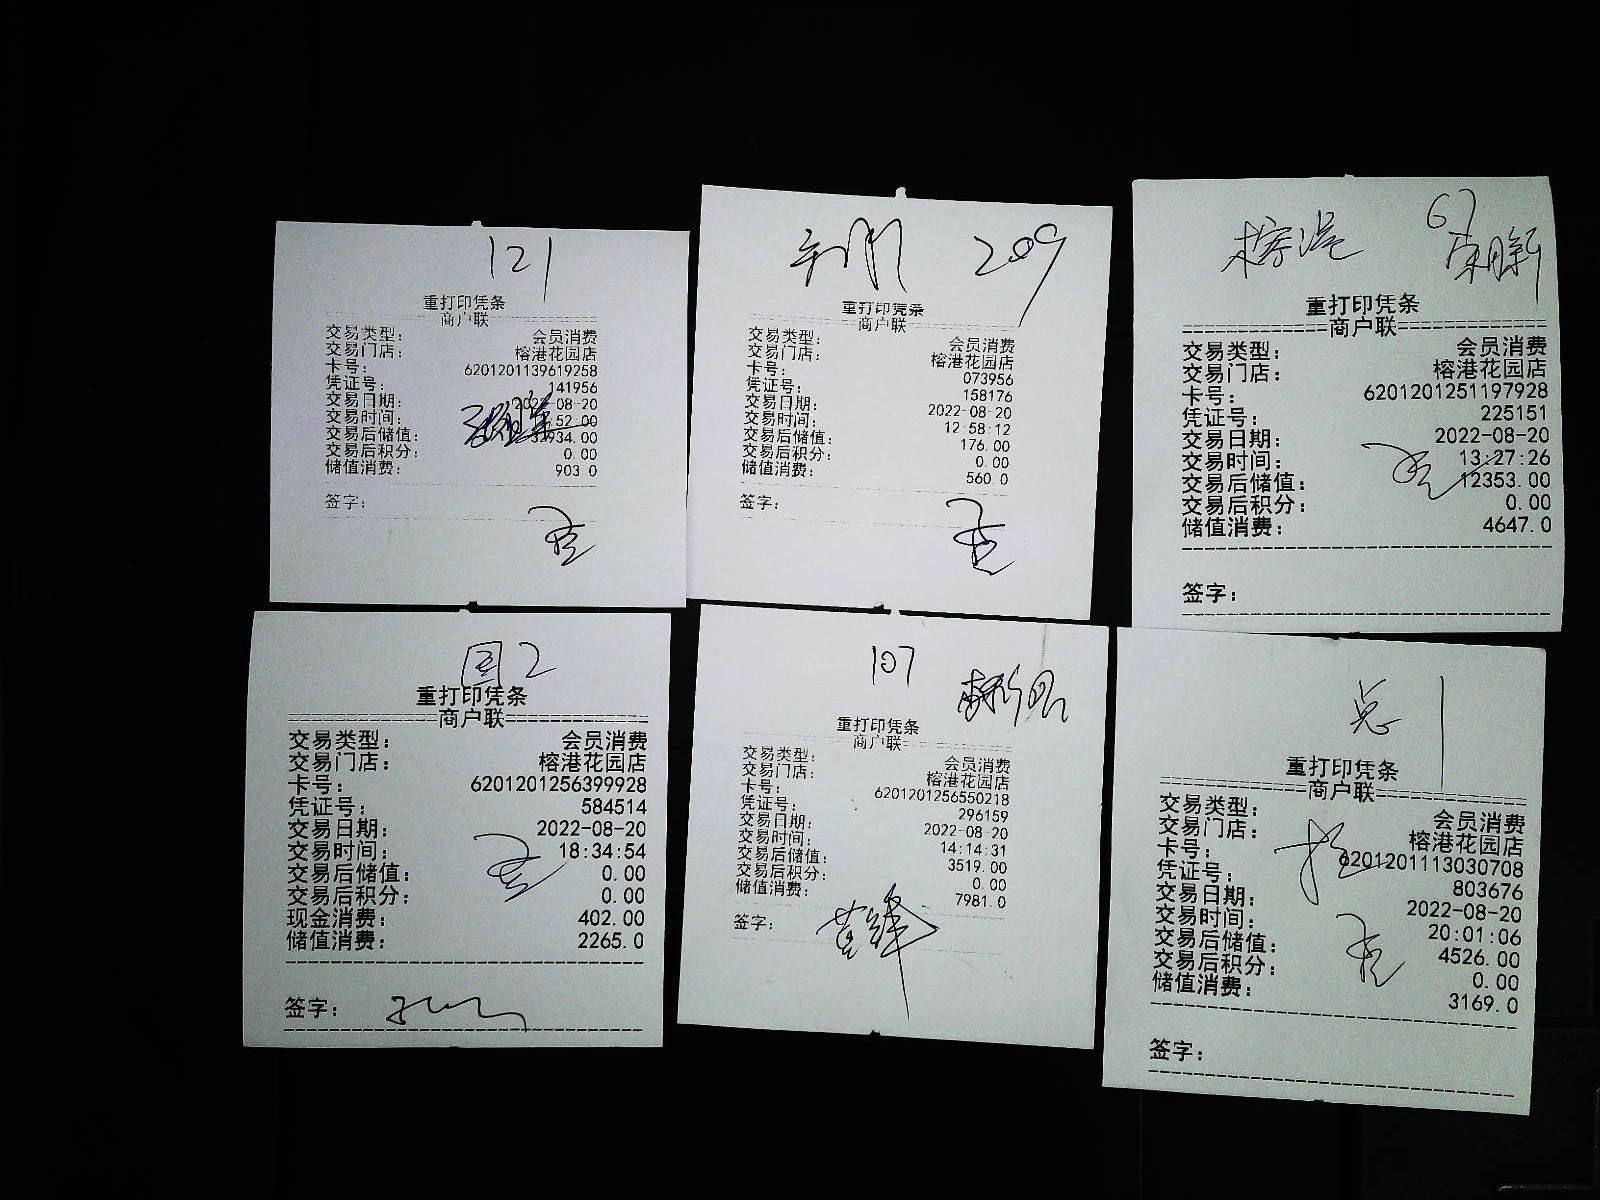 121
重打印凭条
商户联
交易类型： 会员消费
交易门店： 榕港花园店
卡号： 6201201139619258
凭证号： 141956
交易日期： 2022-08-20
交易时间： 52:00
交易后储值： 934.00
交易后积分： 0.00
储值消费： 903.0
签字：
209
重打印凭条
商户联
交易类型： 会员消费
交易门店： 榕港花园店
卡号： 073956
凭证号： 158176
交易日期： 2022-08-20
交易时间： 12:58:12
交易后储值： 176.00
交易后积分： 0.00
储值消费： 560.0
签字：
67
榕港
重打印凭条
商户联
交易类型： 会员消费
交易门店： 榕港花园店
卡号： 6201201251197928
凭证号： 225151
交易日期： 2022-08-20
交易时间： 13:27:26
交易后储值： 12353.00
交易后积分： 0.00
储值消费： 4647.0
签字：
2
重打印凭条
商户联
交易类型： 会员消费
交易门店： 榕港花园店
卡号： 6201201256399928
凭证号： 584514
交易日期： 2022-08-20
交易时间： 18:34:54
交易后储值： 0.00
交易后积分： 0.00
现金消费： 402.00
储值消费： 2265.0
签字：
107
重打印凭条
商户联
交易类型： 会员消费
交易门店： 榕港花园店
卡号： 6201201256550218
凭证号： 296159
交易日期： 2022-08-20
交易时间： 14:14:31
交易后储值： 3519.00
交易后积分： 0.00
储值消费： 7981.0
签字：
总1
重打印凭条
商户联
交易类型： 会员消费
交易门店： 榕港花园店
卡号： 6201201113030708
凭证号： 803676
交易日期： 2022-08-20
交易时间： 20:01:06
交易后储值： 4526.00
交易后积分： 0.00
储值消费： 3169.0
签字：